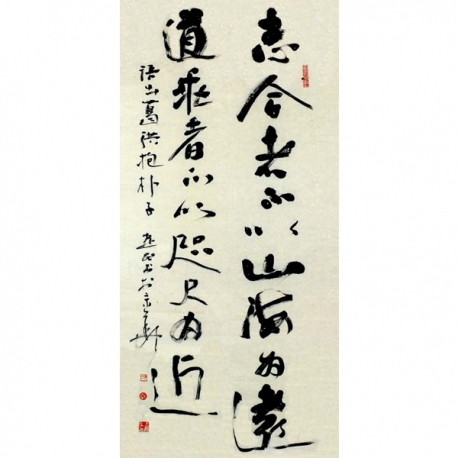 志合者不以山海为遠
道乖者不以咫尺为近
语出葛洪抱朴子